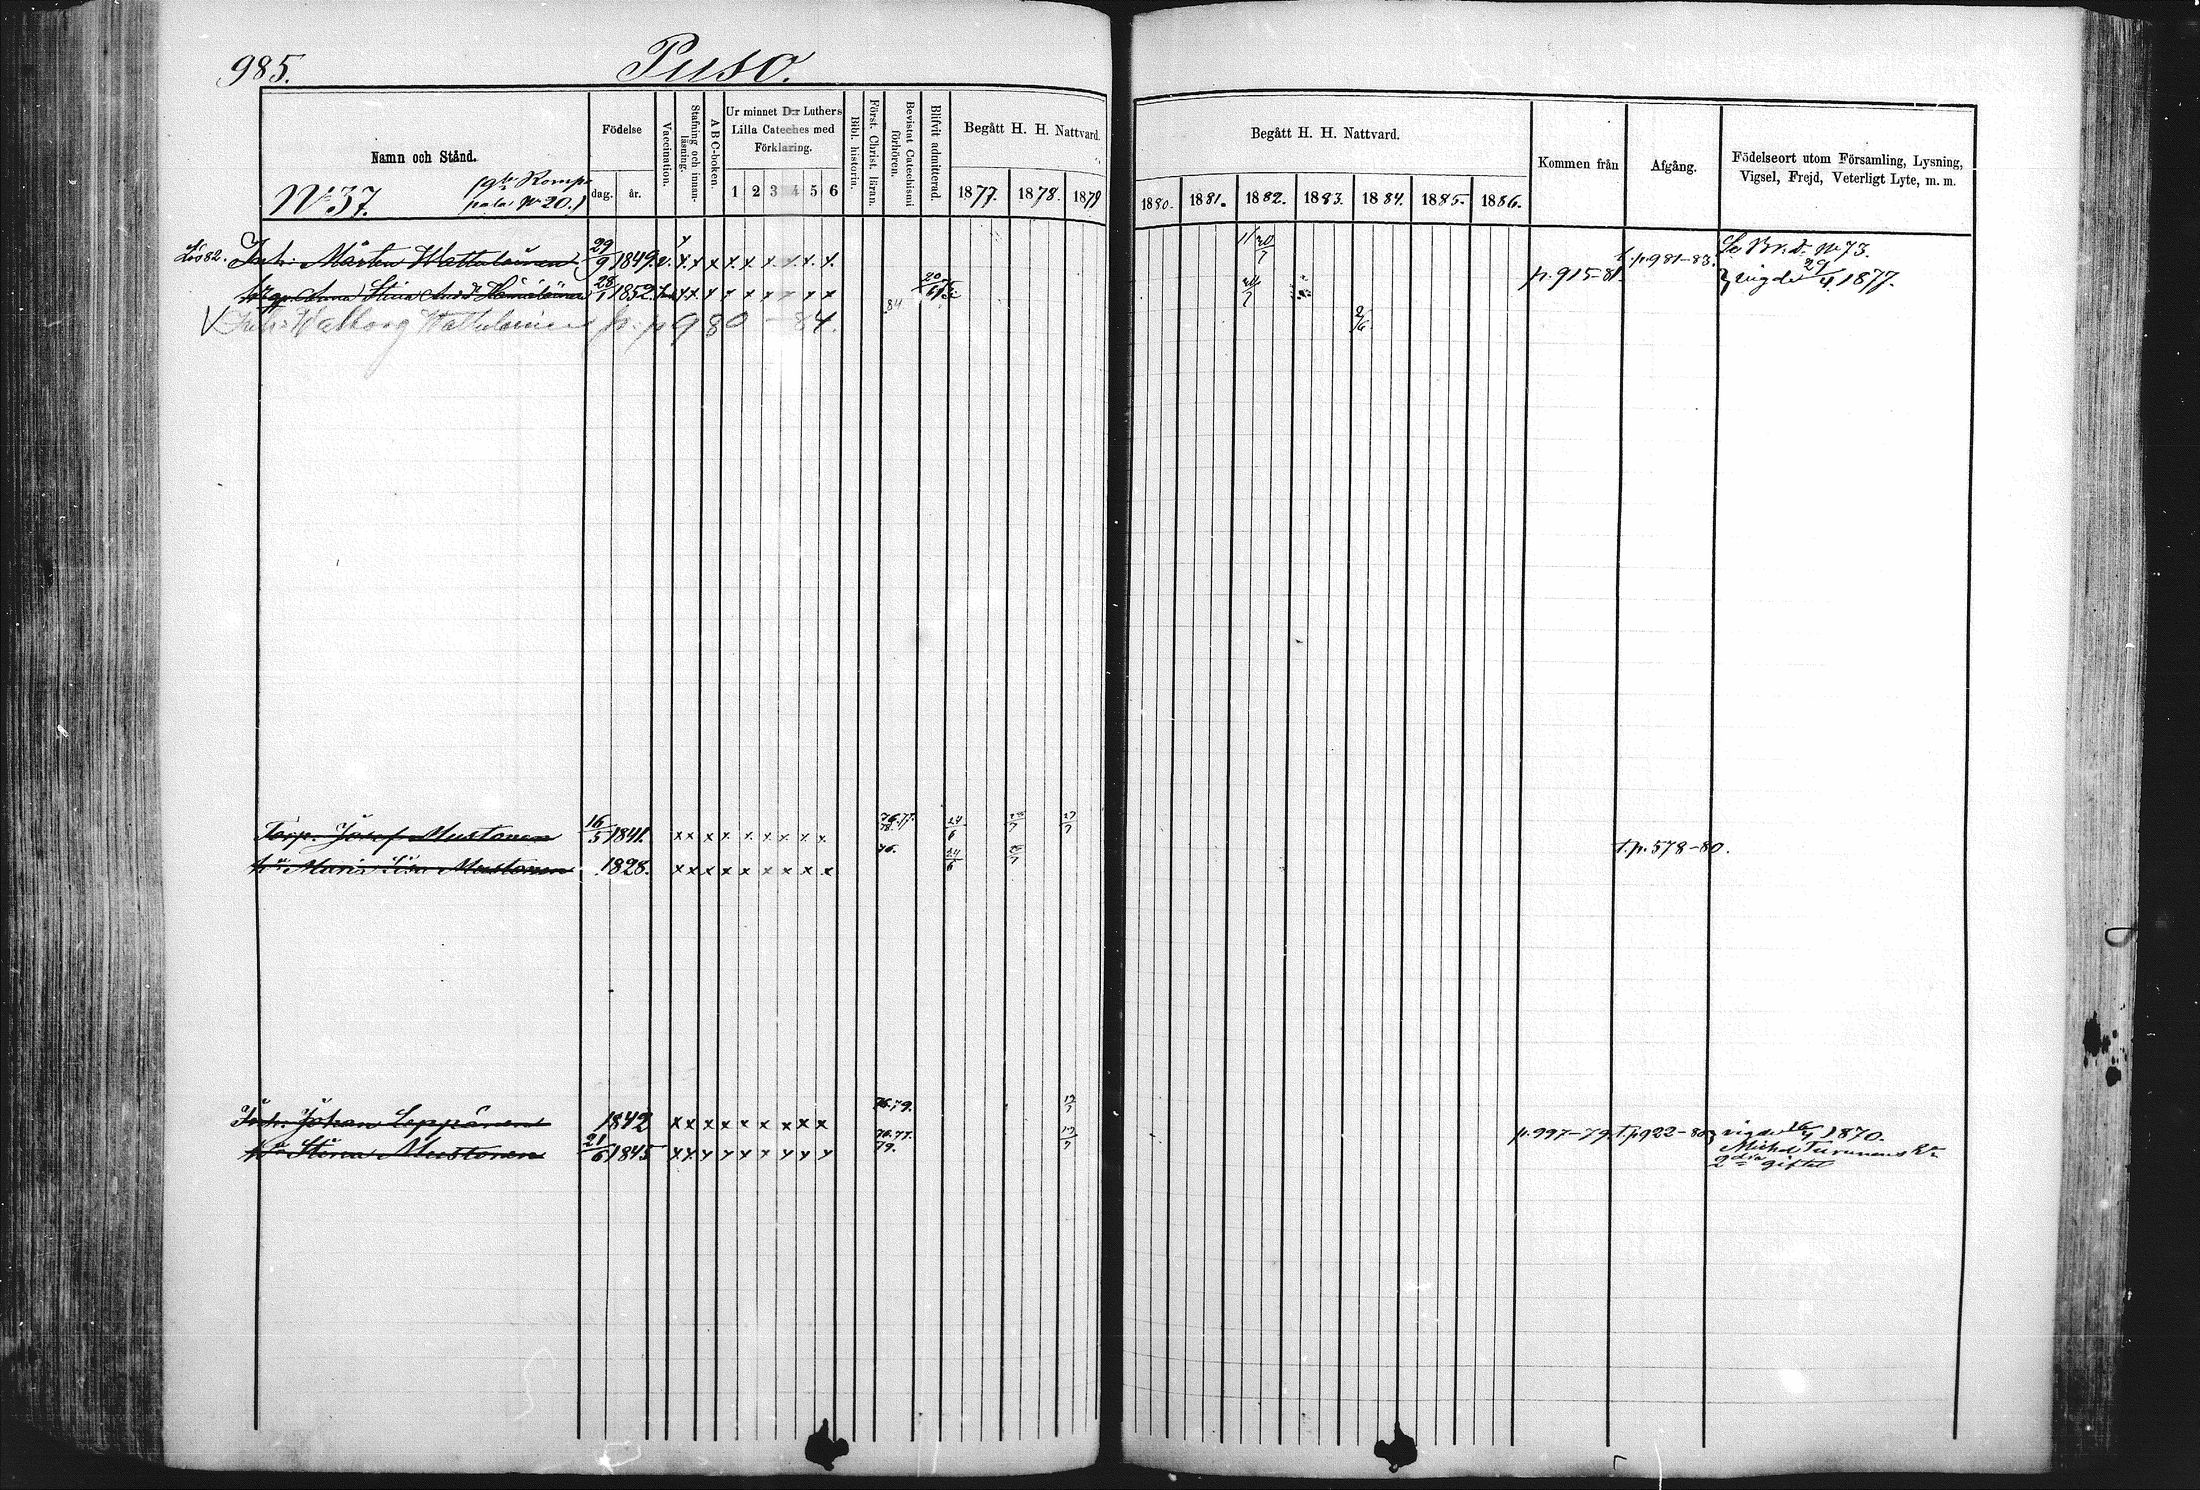 985.
Puso.
Namn och Stånd.
Födelse
dag.
år.
Vaccination.
Stafning och innanläsning.
A B C-boken.
Ur minnet D:r Luthers
Lilla Cateches med
Förklaring.
1 2 3 4 5 6
Bibl. historia.
Först. Christ. läran.
Bevistat Catechismi
förhören.
Blifvit admitterad.
Begått H. H. Nattvard.
1877. 1878. 1879
Begått H. H. Nattvard.
1880. 1881. 1882. 1883. 1884. 1885. 1886.
Kommen från
Afgång.
Födelseort utom Församling, Lysning,
Vigsel, Frejd, Veterligt Lyte, m. m.
No 37.
pala No 20.)
Inh. Mårten Wattulainen 29/9 1849. v. x x x x x x x x x 11/ 20/7 t. p. 981-83. Se Br. d. No 73.
Anna Stina 28/1 1852. x x x x x x x x x 20/6 p. 915-81. vigde 29/4 1877.
V Inh: Walborg Wattulainen fr. p 980-84. 84 2/6
Torp. Josef Mustonen 16/5 1841. x x x x x x x x x 76.77. 78. 24/6 27/7
hu Maria Lisa Mustonen 1828. x x x x x x x x x 76. 24/6 t. p. 578-80.
Inh. Johan Leppänen 1842 x x x x x x x x x 76.79.
hu Stina Mustonen 21/6 1845 x x x x x x x x x 76.77. 79. p. 997-79. t. p 922-80 vigde 16/4 1870.
Michel Turunens
2dra giftet